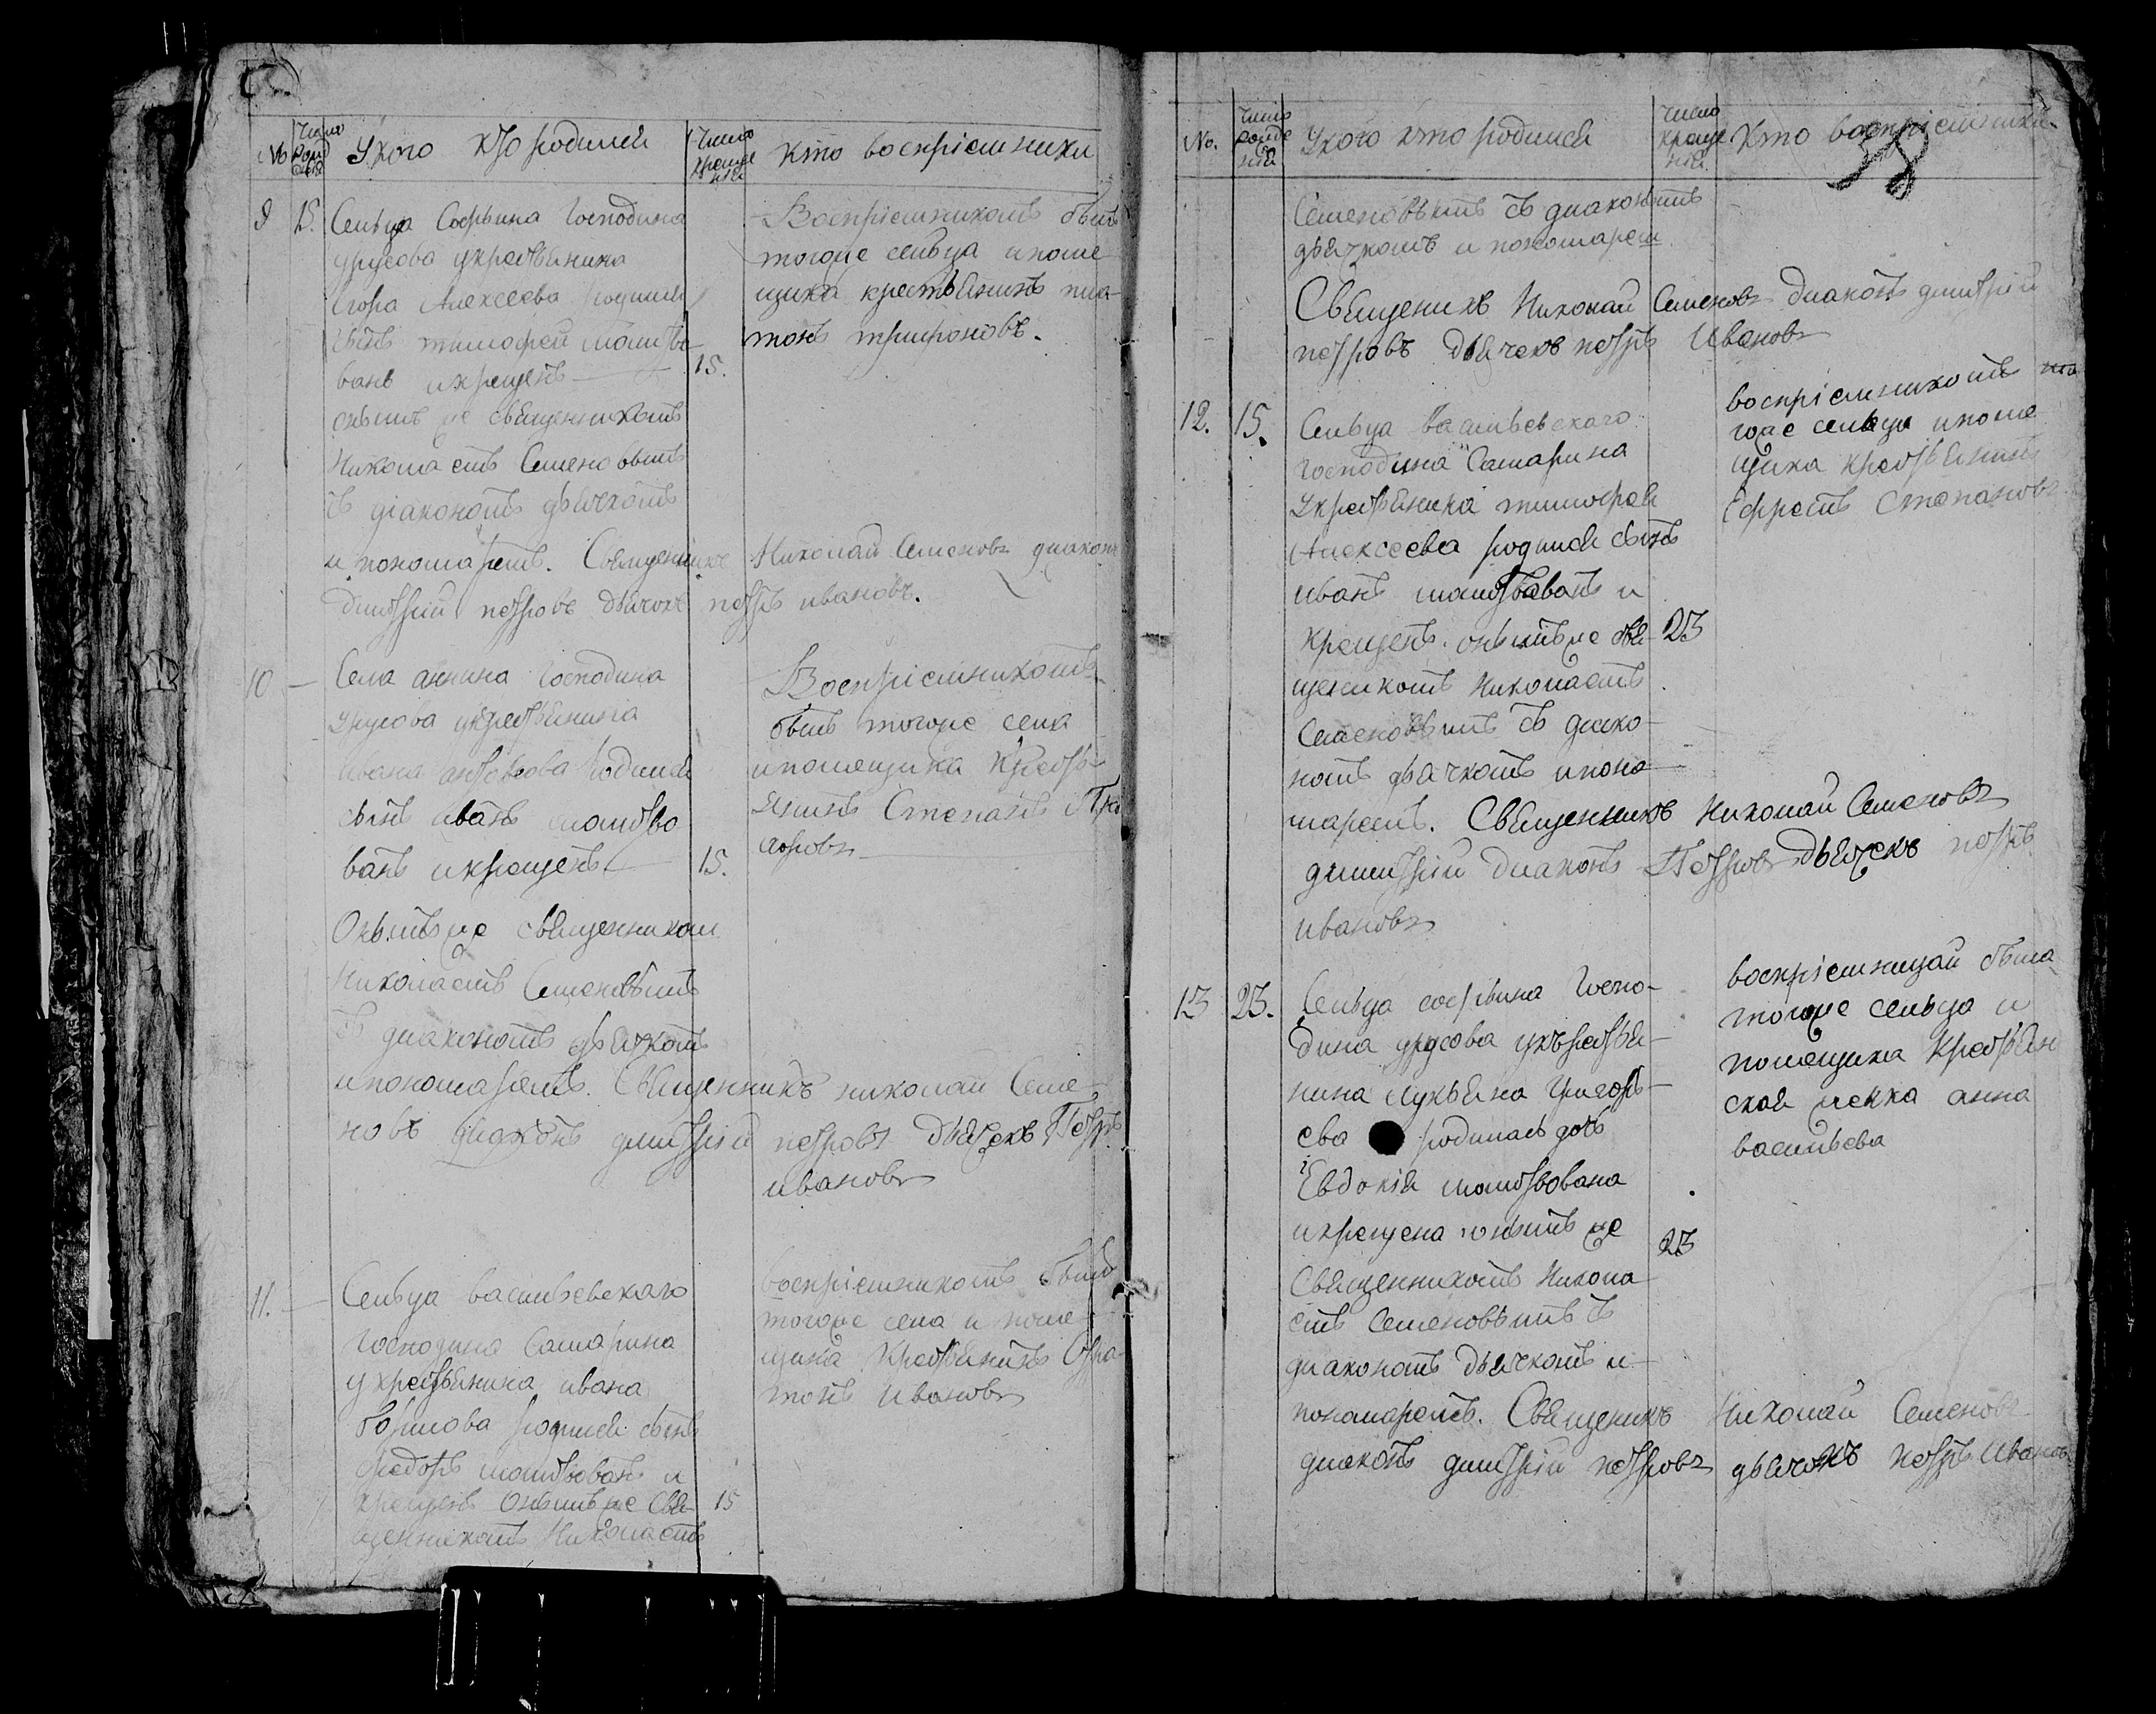 № Число рождения У кого кто родился Число крещения Кто восприемники
9 15. Сельца Софьина Господина
урусова укрестьянина
егора Алексеева родился
сынъ тимофей молитво
ванъ икрещенъ 15.
онымъ же священникомъ
Николаемъ Семеновымъ
съ діакономъ дьячкомъ
и пономаремъ. Священникъ Николай Семеновъ диаконъ
димитрій петровъ дьячокъ петръ ивановъ.
Воспріемникомъ былъ
тогоже сельца ипоме
щика крестьянинъ пла-
тонъ трифоновъ.
10 Села аннина Господина
урусова укрестьянина
ивана родился
сынъ иванъ молитво
ванъ икрещенъ 15.
Онымъ же священником
Николаемъ Семеновымъ
съ диакономъ дьячкомъ
ипономаремъ. Священникъ николай Семе-
новъ диаконъ димитрій петровъ дьячекъ Петръ
ивановъ
Воспріемникомъ
былъ тогоже села
ипомещика кресть-
янинъ Степанъ
11. Сельца васильевскаго
господина Самарина
укрестьянина ивана
родился сынъ
федоръ молитвованъ и
крещенъ Онымъ же Свя- 15
щенникомъ Николаемъ
воспріемникомъ былъ
тогоже села и поме-
щика Крестьянинъ
Ивановъ
38
No. число рожде нія Укого кто родился число креще нія Кто воспріемники.
Семеновымъ съ диакономъ
дьячкомъ и пономарем
Священикъ Николай Семеновъ диаконъ димитрій
петровъ дьячекъ петръ Ивановъ
12. 15. Сельца Васильевскаго
господина Самарина
укрестьянина тимофея
Алексеева родился сынъ
иванъ молитвованъ и
крещенъ. онымъ же свя- 23
щеникомъ Николаемъ
Семеновымъ съ диако-
номъ дьячкомъ ипоно-
маремъ. Священникъ Николай Семеновъ
димитрій диаконъ Петровъ дьячекъ петръ
ивановъ
воспріемникомъ то
гоже сельца ипоме
щика крестьянинъ
Ефремъ Степановъ
13 23. Сельца софьина Госпо-
дина урусова укърестья-
нина лукьяна Григорь-
ева родилась дочь
Евдокія молитвована
икрещена онымъ же 23
Священникомъ Никола-
емъ Семеновымъ съ
диакономъ дьячкомъ и-
пономаремъ. Священикъ Николай Семеновъ
диаконъ димитрій петровъ дьячокъ петръ Ивановъ
воспріемницай была
тогоже сельца и
помещика Крестьян
ская женка анна
васильева